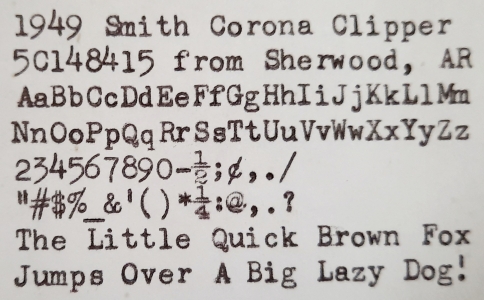 1949 Smith Corona Clipper
5C148415 from Sherwood, AR
AaBbCcDdEeFfGgHhIiJjKkLlMm
NnOoPpQqRrSsTtUuVvWwXxYyZz
234567890-½;¢,./
"#$%_&'()*¼:@,.?
The Little Quick Brown Fox
Jumps Over A Big Lazy Dog!